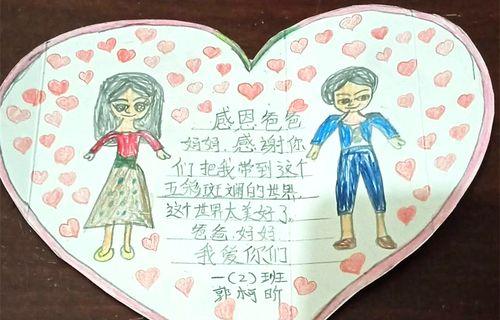 感恩爸爸
妈妈,感谢你
们把我带到这个
五彩斑斓的世界,
这个世界太美好了,
爸爸、妈妈
我爱你们
一(2)班
郭柯昕